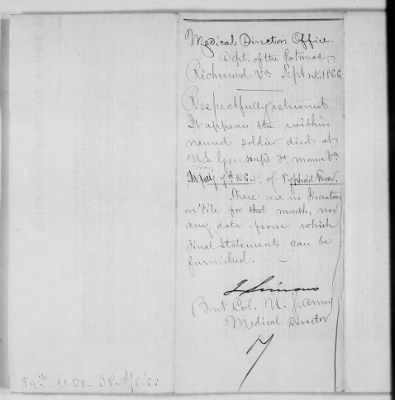 Medical Directors Office.
Dept. of the Potomac
Richmond Va Sept 4, 1866
Respectfully returned
It appears the within
named soldier died at
U.S. Gen Hosp'l Ft. Monroe Va
May 7th of Typhoid Fever.
There are no
on file for that month, nor
any data from which
final Statements can be
furnished. —
Simons
Bvt Col. U.S. Army
Medical Director
7